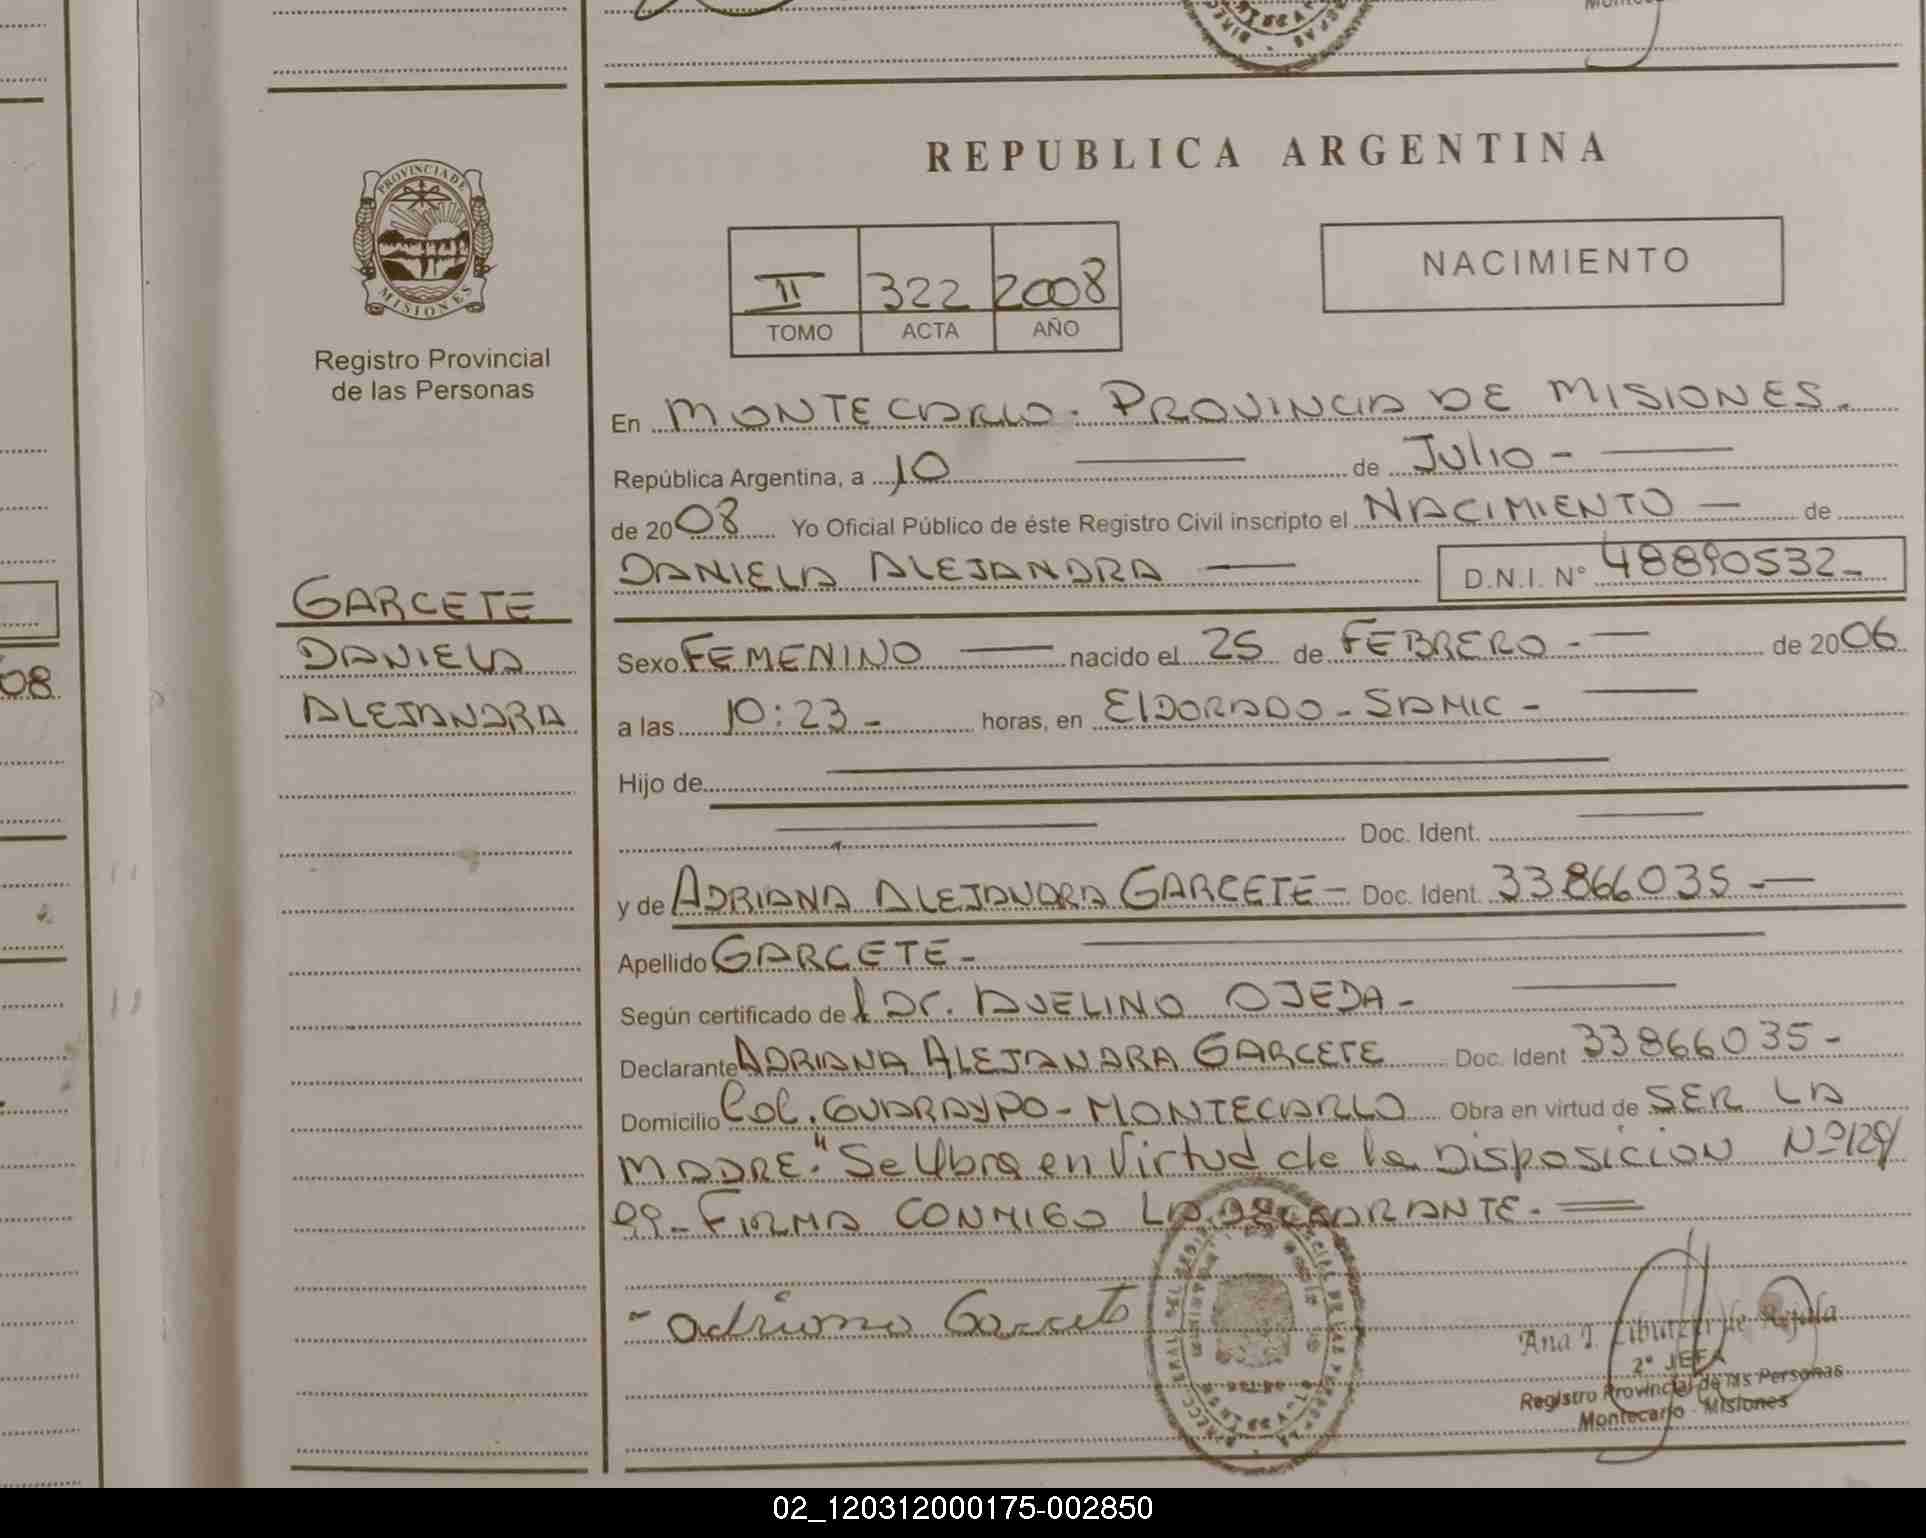 REPUBLICA ARGENTINA
PROVINCIA DE
MISIONES
Registro Provincial
de las Personas
II 322 2008
TOMO ACTA AÑO
NACIMIENTO
En MONTECARLO. PROVINCIA DE MISIONES.
República Argentina, a 10 de JULIO -
de 2008 Yo Oficial Público de éste Registro Civil inscripto el NACIMIENTO — de
DANIELA ALEJANDRA — D.N.I. N° 48890532-
GARCETE
DANIELA
ALEJANDRA
08
Sexo FEMENINO — nacido el 25 de FEBRERO - de 2006
a las 10:23 - horas, en ELDORADO - SAMIC -
Hijo de
Doc. Ident.
y de ADRIANA ALEJANDRA GARCETE - Doc. Ident. 33866035 -
Apellido GARCETE -
Según certificado de DR. AVELINO OJEDA -
Declarante ADRIANA ALEJANDRA GARCETE Doc. Ident 33866035 -
Domicilio Col. GUARAYPO - MONTECARLO Obra en virtud de SER LA
MADRE." Se Labra en Virtud de la DISPOSICION Nº 129/
99 - FIRMA CONMIGO LA DECLARANTE. =
- Adriana Garcete
Ana
de Rojala
2° JEFA
Registro Provincial de las Personas
Montecarlo - Misiones
02_120312000175-002850